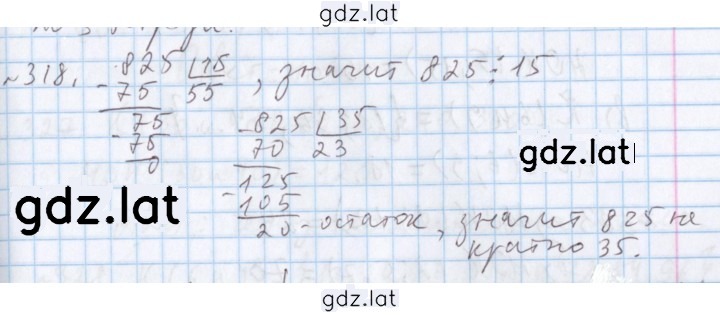 gdz.lat
№318. 825 |15 , значит 825⋮15
- 75 55
75
- 75
0
- 825 |35
70 23
125
- 105
20 - остаток, значит 825 не
кратно 35.
gdz.lat
gdz.lat
gdz.lat